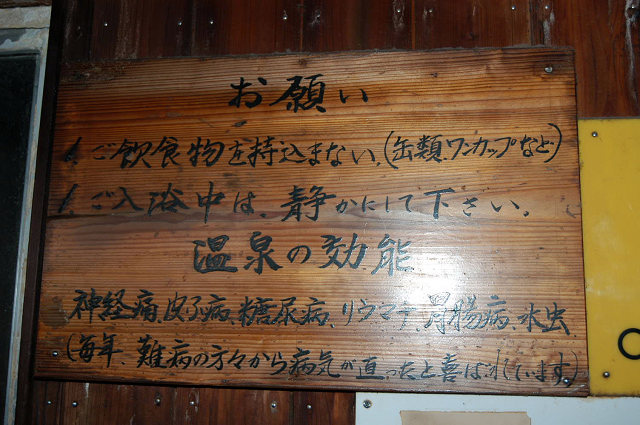 お願い
1. ご飲食物を持込まない。(缶類、ワンカップなど)
1. ご入浴中は、静かにして下さい。
温泉の効能
神経痛、皮ふ病、糖尿病、リウマチ、胃腸病、水虫
(毎年、難病の方々から病気が直ったと喜ばれています)